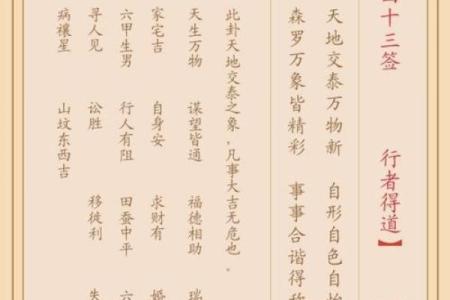 十三签 行者得道】
天地交泰万物新 自形自色自
森罗万象皆精彩 事事合谐得称
此卦天地交泰之象,凡事大吉无危也。
天生万物 谋望皆通 福德相助 瑞
家宅吉 自身安 求财有 婚
六甲生男 行人有阻 田蚕中平 六
寻人见 讼胜 移徙利 失
病禳星 山坟东西吉